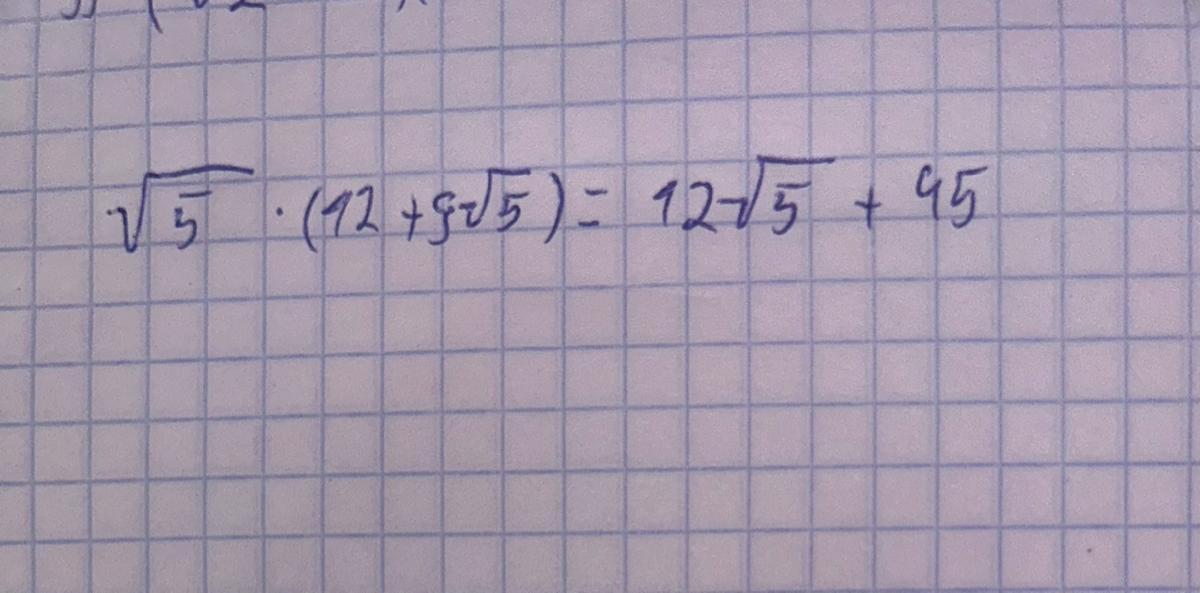 √5 · (12 + 9√5) = 12√5 + 45